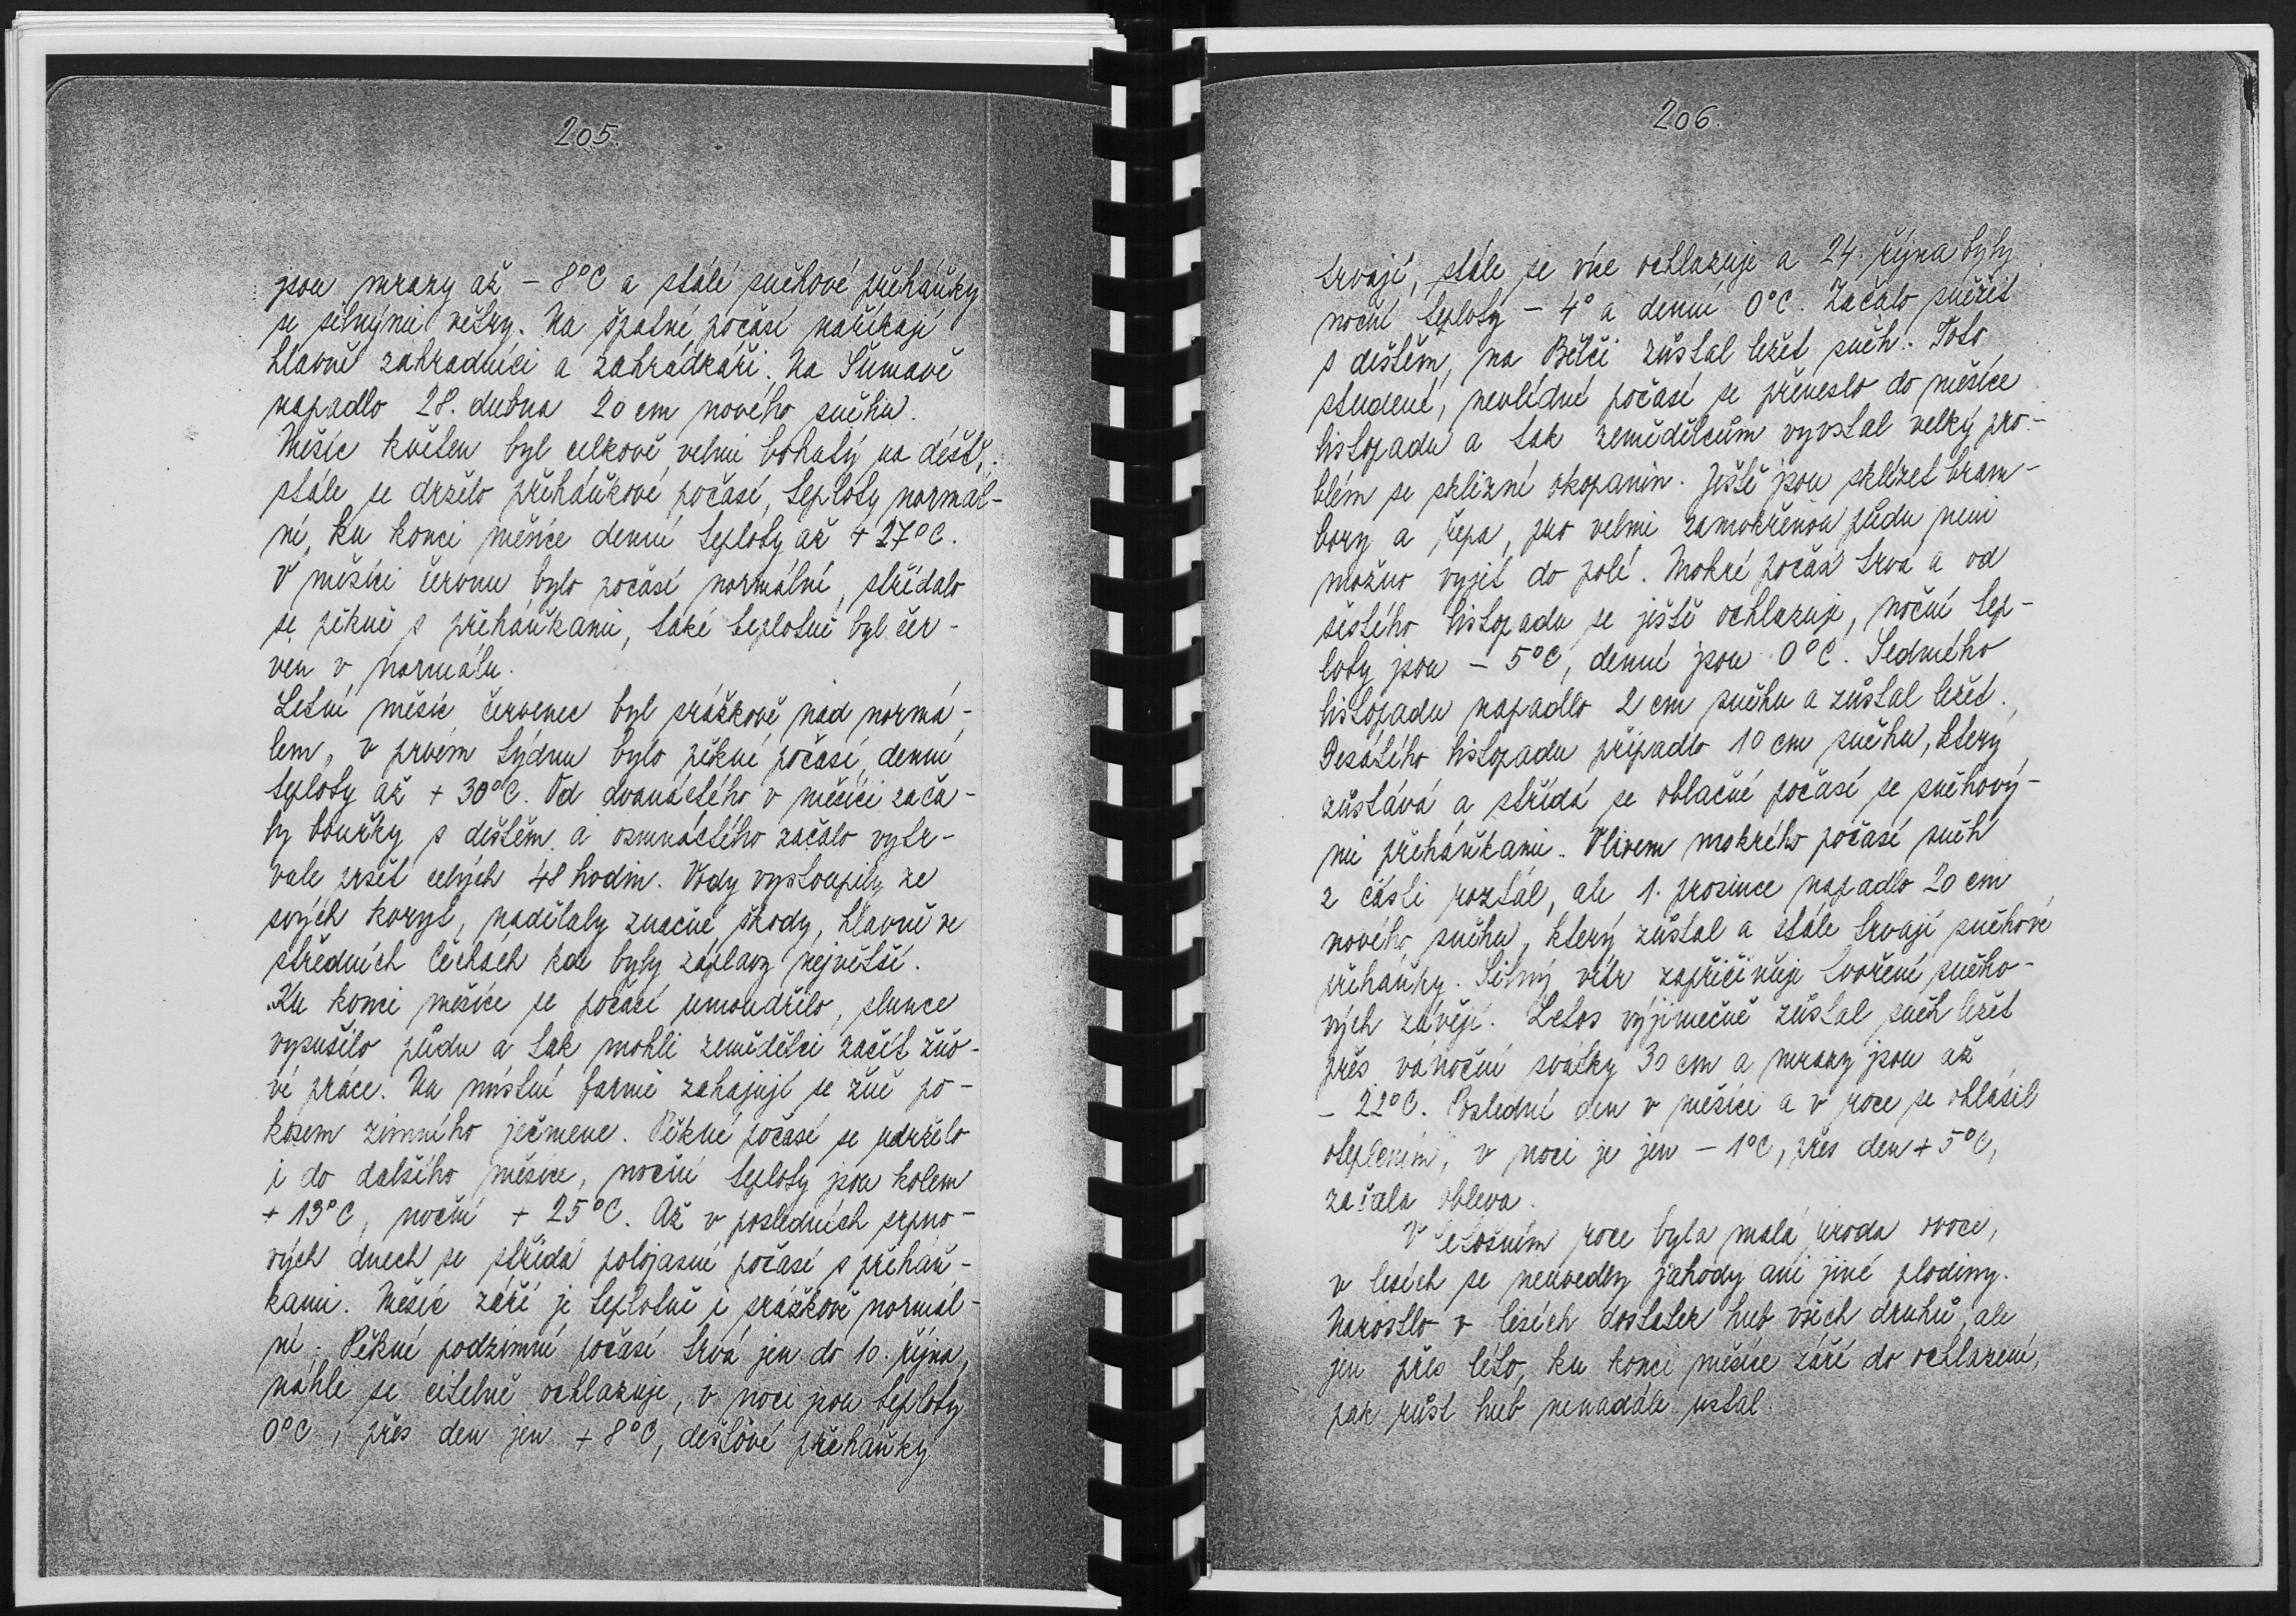 205.
jsou mrazy až - 8°C a stálé sněhové přeháňky
se silnými větry. Na špatné počasí naříkají
hlavně zahradníci a zahrádkáři. Na Šumavě
napadlo 28. dubna 20 cm nového sněhu.
Měsíc květen byl celkově velmi bohatý na déšť,
stále se drželo přeháňkové počasí, teploty normál-
ní, ku konci měsíce denní teploty až + 27°C.
V měsíci červnu bylo počasí normální, střídalo
se pěkně s přeháňkami, také teplotně byl čer-
ven v normálu.
Letní měsíc červenec byl srážkově nad normá-
lem, v prvém týdnu bylo pěkné počasí, denní
teploty až + 30°C. Od dvanáctého v měsíci zača-
ly bouřky s deštěm a osmnáctého začalo vytr-
vale pršet celých 48 hodin. Vody vystoupily ze
svých koryt, nadělaly značné škody, hlavně ve
středních Čechách kde byly záplavy největší.
Ku konci měsíce se počasí umoudřilo, slunce
vysušilo půdu a tak mohli zemědělci začít žňo-
vé práce. Na místní farmě zahajují se žně po-
kosem zimního ječmene. Pěkné počasí se udrželo
i do dalšího měsíce, noční teploty jsou kolem
+ 13°C, noční + 25°C. Až v posledních srpno-
vých dnech se střídá polojasné počasí s přeháň-
kami. Měsíc září je teplotně i srážkově normál-
ní. Pěkné podzimní počasí trvá jen do 10. října,
náhle se citelně ochlazuje, v noci jsou teploty
0°C, přes den jen + 8°C, dešťové přeháňky
206.
trvají, stále se více ochlazuje a 24. října byly
noční teploty - 4° a denní 0°C. Začalo sněžit
s deštěm, na Bělči zůstal ležet sníh. Toto
studené, nevlídné počasí se přeneslo do měsíce
listopadu a tak zemědělcům vyvstal velký pro-
blém se sklizní okopanin. Ještě jsou sklízet bram-
bory a řepa, pro velmi zamokřenou půdu není
možno vyjet do polí. Mokré počasí trvá a od
šestého listopadu se ještě ochlazuje, noční tep-
loty jsou - 5°C, denní jsou 0°C. Sedmého
listopadu napadlo 2 cm sněhu a zůstal ležet.
Desátého listopadu připadlo 10 cm sněhu, který
zůstává a střídá se oblačné počasí se sněhový-
mi přeháňkami. Vlivem mokrého počasí sníh
z části roztál, ale 1. prosince napadlo 20 cm
nového sněhu, který zůstal a stále trvají sněhové
přeháňky. Silný vítr zapříčiňuje tvoření sněho-
vých závějí. Letos výjimečně zůstal sníh ležet
přes vánoční svátky 30 cm a mrazy jsou až
- 22°C. Poslední den v měsíci a v roce se ohlásil
oteplením, v noci je jen - 1°C, přes den + 5°C,
začala obleva.
V letošním roce byla malá úroda ovoce,
v lesích se neuvedly jahody ani jiné plodiny.
Narostlo v lesích dostatek hub všech druhů, ale
jen přes léto, ku konci měsíce září do ochlazení,
pak růst hub nenadále ustal.